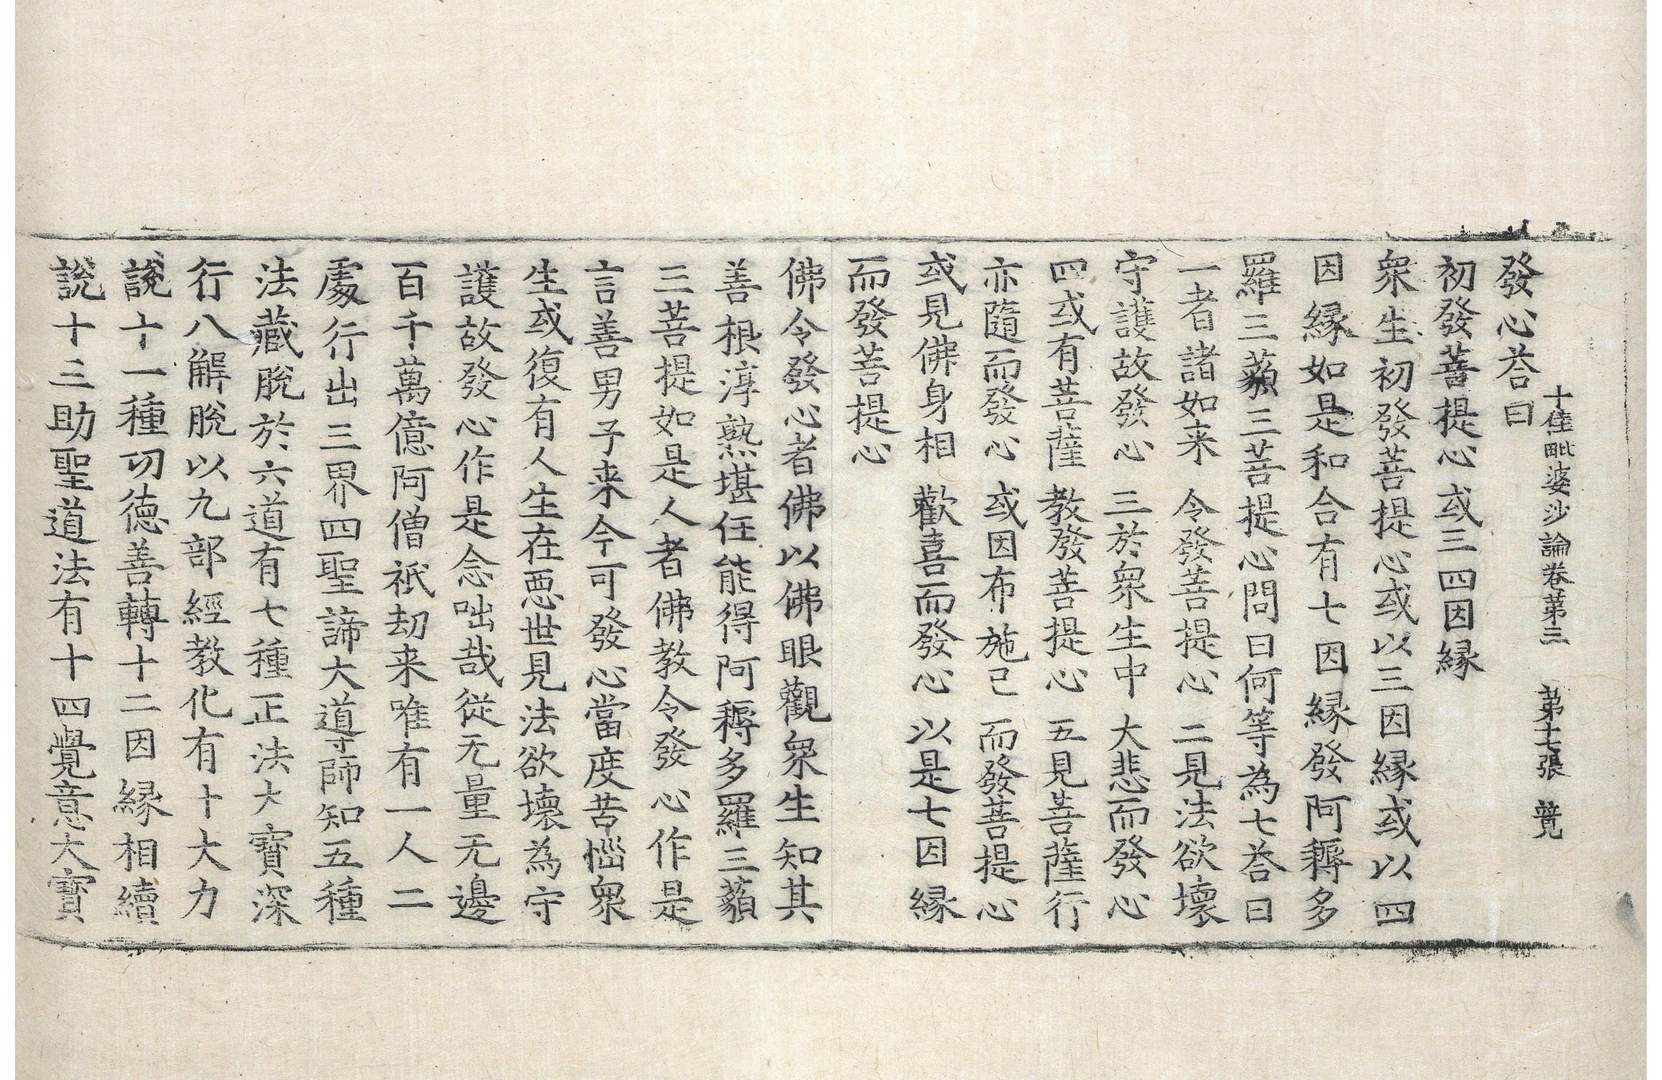 十住毗婆沙論卷第三 第十七張 競
發心荅曰
初發菩提心或三四因縁
衆生初發菩提心或以三因縁或以四
因縁如是和合有七因縁發阿耨多
羅三藐三菩提心問曰何等為七荅曰
一者諸如来 令發菩提心 二見法欲壞
守護故發心 三於衆生中 大悲而發心
四或有菩薩 教發菩提心 五見菩薩行
亦隨而發心 或因布施已 而發菩提心
或見佛身相 歡喜而發心 以是七因縁
而發菩提心
佛令發心者佛以佛眼觀衆生知其
善根淳熟堪任能得阿耨多羅三藐
三菩提如是人者佛教令發心作是
言善男子来今可發心當度苦惱衆
生或復有人生在惡世見法欲壞為守
護故發心作是念咄哉従无量无邊
百千萬億阿僧祇劫来唯有一人二
處行出三界四聖諦大導師知五種
法藏脫於六道有七種正法大寶深
行八解脫以九部經教化有十大力
說十一種功德善轉十二因縁相續
說十三助聖道法有十四覺意大寶